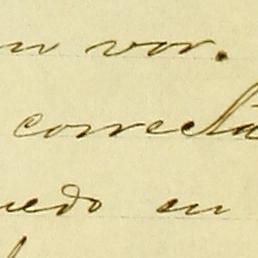 vor.
correcta
uedo en